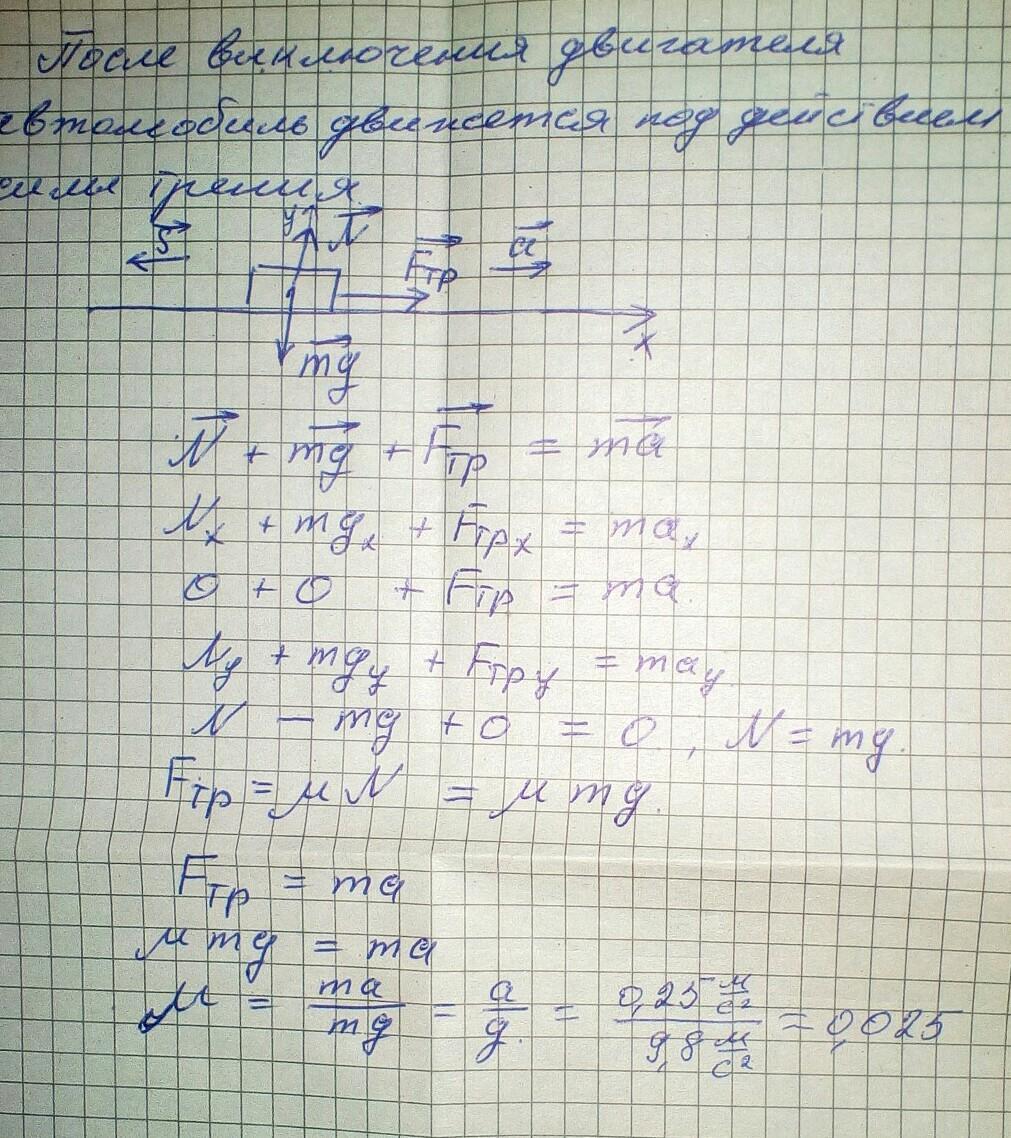 После выключения двигателя
автомобиль движется под действием
силы трения
S y N Fтр a
x
mg
N + mg + Fтр = ma
Nx + mgx + Fтрx = max
0 + 0 + Fтр = ma.
Ny + mgy + Fтрy = may.
N - mg + 0 = 0, N = mg.
Fтр = μN = μmg.
Fтр = ma
μmg = ma
μ = ma/mg = a/g. = 0,25 м/с² / 9,8 м/с² = 0,025